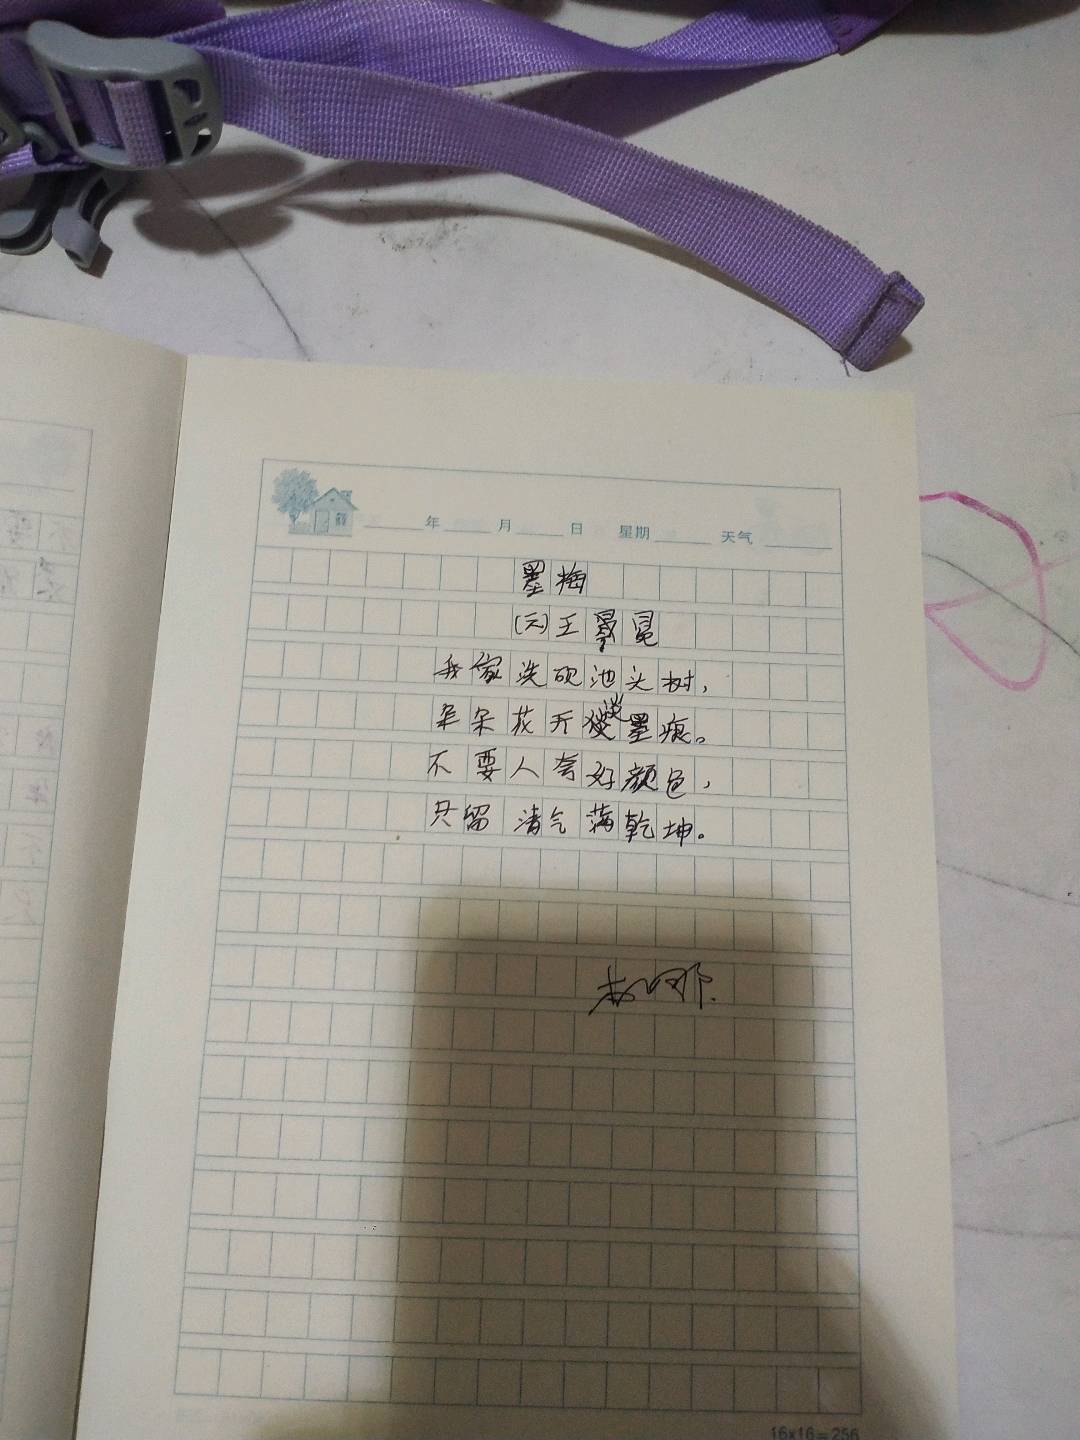 年 月 日 星期 天气
墨梅
(元)王冕
我家洗砚池头树,
朵朵花开淡墨痕。
不要人夸好颜色,
只留清气满乾坤。
16x16=256